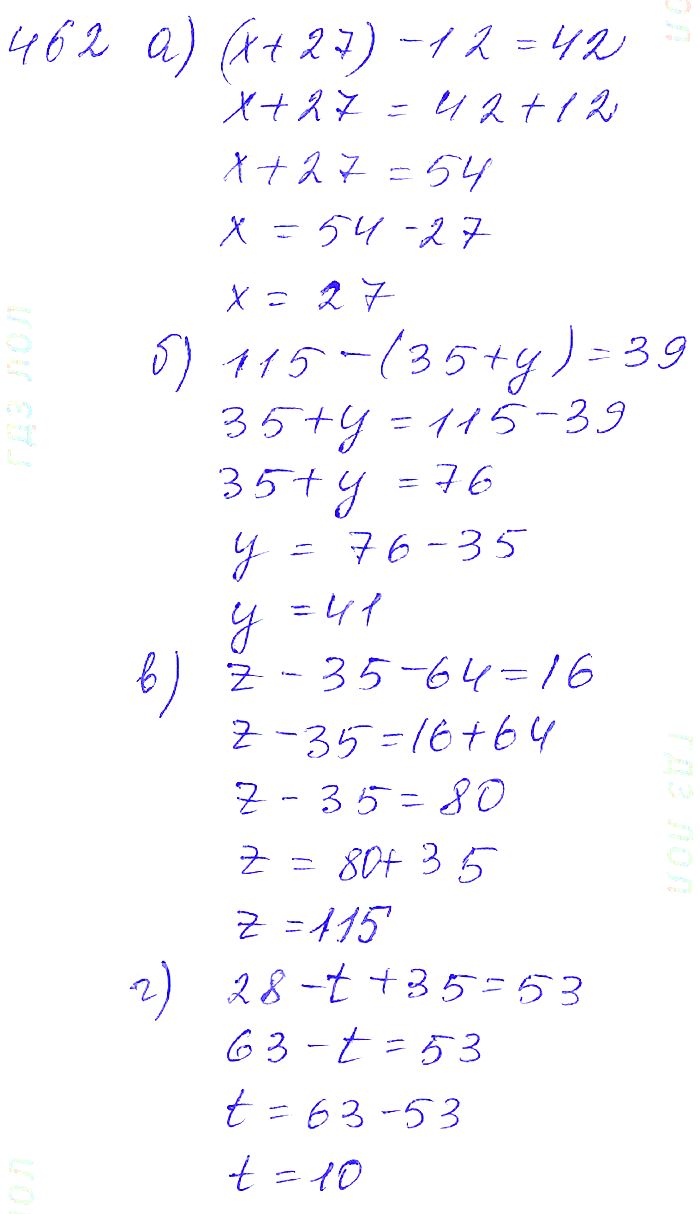 462 а) (x+27) -12 = 42
x+27 = 42+12
x+27 = 54
x = 54 -27
x = 27
б) 115 - (35+y) = 39
35+y = 115-39
35+y = 76
y = 76-35
y = 41
в) z - 35 - 64 = 16
z - 35 = 16+64
z - 35 = 80
z = 80+35
z = 115
г) 28 - t + 35 = 53
63 - t = 53
t = 63 - 53
t = 10
гдз лол
гдз лол